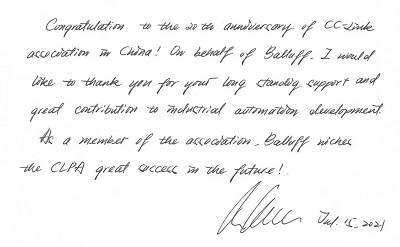 Congratulation to the 20th anniversary of CC-Link
association in China! On behalf of Balluff, I would
like to thank you for your long standing support and
great contribution to industrial automation development.
As a member of the association, Balluff wishes
the CLPA great success in the future!
Jul. 15. 2021